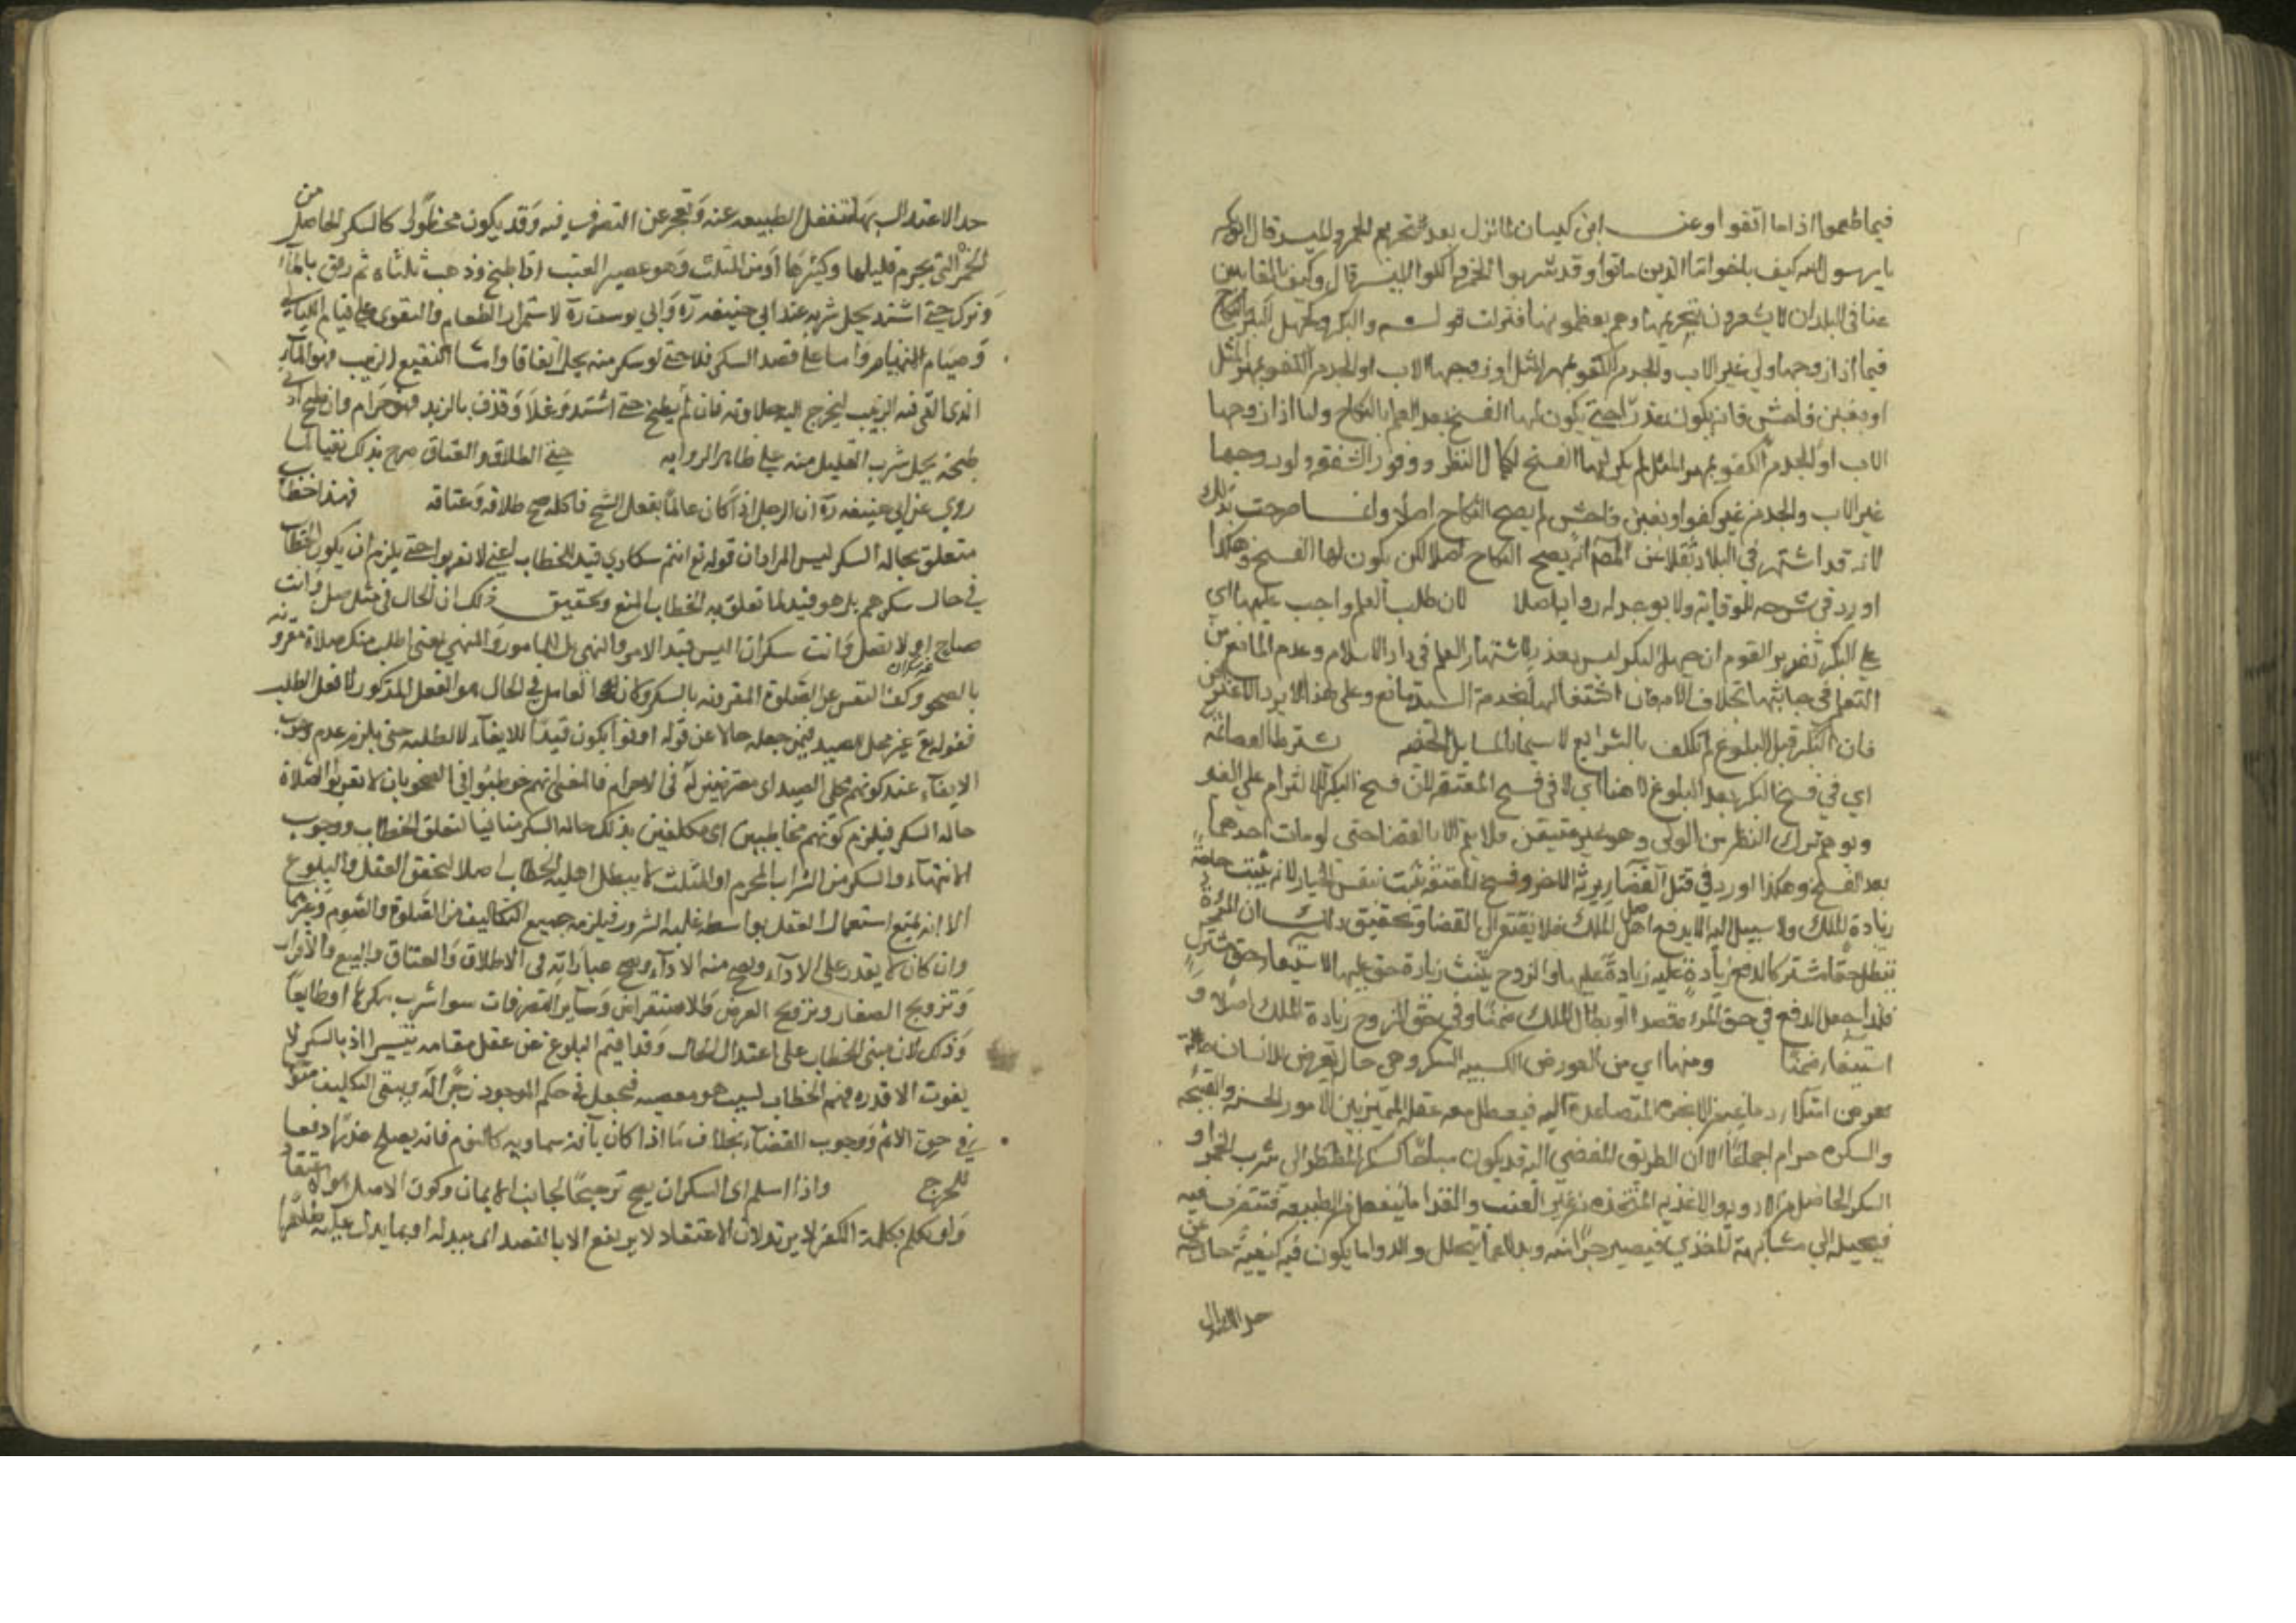 فيما طعموا اذا ما اتقوا وعن ابن كيسان لما نزل بعد تحريم الخمر والميسر قال ابوبكر
يا رسول الله كيف باخواننا الذين ماتوا وقد شربوا الخمر واكلوا الميسر قال وكيف بالغايبين
عنا في البلدان لا يشعرون بتحريمها وهم يطعمونها فنزلت قوله والبكر وجهل البكر بالنكاح
فيما اذا زوجها ولي غير الاب والجد من الكفو بمهر المثل او زوجها الاب او الجد من الكفو بمهر المثل
او بغبن فاحش فانه يكون عذرا حتى يكون لها الفسخ بعد العلم بالنكاح واما اذا زوجها
الاب او الجد من الكفو بمهر المثل لم يكن لها الفسخ لكمال النظر ووفور الشفقة ولو زوجها
غير الاب والجد من غير كفو او بغبن فاحش لم يصح النكاح اصلا وانما صرحت بذلك
لانه قد اشتهر في البلاد نقلا عن المص انه يصح النكاح اصلا لكن يكون لها الفسخ وهكذا
اورد في شرحه للوقاية ولا يوجد له رواية اصلا لان طلب العلم واجب عليها اي
على البكر تقرير القوم ان جهل البكر ليس بعذر لاشتهار العلم في دار الاسلام وعدم المانع من
التعلم في جانبها بخلاف الامة فان اشتغالها بخدمة السيد مانع وعلى هذا لا يرد الاعتراض
فان البكر قبل البلوغ لم تكلف بالشرايع لا سيما المسايل الخفية شترط القضا ثمه
اي في فسخ البكر بعد البلوغ لا هنا اي لا في فسخ المعتقة لان فسخ البكر الالزام على الغير
وتوهم ترك النظر من الولي وهو غير متيقن فلا يتم الا بالقضا حتى لو مات احدهما
بعد الفسخ وهكذا اورد في قبل القضا يرثه الاخر وفسخ المعتقة يثبت بنفس الخيار لانه يثبت
زيادة الملك ولا سبيل اليه الا بدفع اصل الملك فلا يفتقر الى القضا وتحقيق ذلك ان المرأة
تبطل حقا مشتركا لدفع زيادة عليه زيادة عليها والزوج يثبت زيادة حق عليها لاستيفا حق مشترك
فلذا جعل الدفع في حق المرأة مقصدا وبطال الملك ضمنا وفي حق الزوج زيادة الملك اصلا و
استيفا ضمنا ومنها اي من العورض الكسبية السكر وهي حال تعرض للانسان
تعرض امتلا دماغه من الابخرة المتصاعدة اليه فيعطل معه عقله المميز بين الامور الحسنة والقبيحة
والسكر حرام اجماعا الا ان الطريق المفضي اليه قد يكون مباحا كسكر المضطر الى شرب الخمر او
السكر الحاصل من الادوية والاغذية المتخذة من غير العنب والغذا ما ينفعل من الطبيعة فتتصرف فيه
فيحيله الى مشابهة المغذي فيصير جزا منه وبدلا عما يتحلل والدوا ما يكون فيه كيفية خارجة عن
حد الاعتدال
حد الاعتدال بها تنفعل الطبيعة عنه وتعجز عن التصرف فيه وقد يكون محظورا كالسكر الحاصل من
الخمر التي يحرم قليلها وكثيرها او من المثلث وهو عصير العنب اذا طبخ وذهب ثلثاه ثم رقق بالماء
وترك حتى اشتد يحل شربه عند ابي حنيفه ره وابي يوسف ره لاستمرار الطعام والتقوى على قيام الليالي
وصيام الايام واما على قصد السكر فلا حتى لو سكر منه يحد اتفاقا واما النقيع الزبيب فهو الماء
الذي القي فيه الزبيب ليخرج اليه حلاوته فان لم يطبخ حتى اشتد وغلا وقذف بالزبد فهو حرام وان طبخ ادنى
طبخه يحل شرب القليل منه على ظاهر الروايه حتى الطلاق والعتاق صرح بذلك نفيا لما
روي عن ابي حنيفه ره ان الرجل اذا كان عالما بفعل البنج فاكله صح طلاقه وعتاقه فهذا خطاب
متعلق بحالة السكر ليس المراد ان قوله تع انتم سكارى قيد للخطاب اعني لا تقربوا حتى يلزم ان يكون الخطاب
في حال سكرهم بل هو قيد لما تعلق به الخطاب المنع وتحقيق ذلك ان الحال في مثل صل وانت
صاح او لا تصل وانت سكران ليس قيد الامر والنهي بل المامور والمنهي بمعنى اطلب منك صلاة مقرونه
بالصحو وكف النفس عن الصلوة المقرونه بالسكر وكان العامل في الحال هو الفعل المذكور لا فعل الطلب
فقوله تع غير محلي الصيد فيمن جعله حالا عن قوله اوفوا يكون قيدا للايفاء لا لطلبه حتى يلزم عدم وجوب
الايفاء عند كونهم محلي الصيد اي معترضين له في الاحرام فالمعنى انهم خوطبوا في الصحو بان لا تقربوا الصلاة
حاله السكر فيلزم كونهم مخاطبين اي مكلفين بذلك حاله السكر منافيا لتعلق الخطاب ووجوب
الانتهاء والسكر من الشراب المحرم او المثلث لا يبطل اهلية الخطاب اصلا لتحقق العقل والبلوغ
الا انه يمتنع استعمال العقل بواسطه غلبه السرور فيلزمه جميع التكاليف من الصلوة والصوم وغيرهما
وان كان لا يقدر على الاداء ويصح منه الاداء ويصح عباراته في الاطلاق والعتاق والبيع والاقرار
وتزويج الصغار وتزويج العرض والاستقراض وساير التصرفات سوا شرب مكرها او طايعا
وذلك لان مبنى الخطاب على اعتدال الحال وقد اقيم البلوغ عن عقل مقامه تيسيرا اذ بالسكر لا
يفوت الا قدره فهم الخطاب بسبب هو معصيه فيجعل في حكم الموجود زجرا له ويبقى التكليف متوجها
في حق الاثم ووجوب القضاء بخلاف ما اذا كان بآفة سماويه كالنوم فانه يصلح عذرا دفعا
للحرج واذا اسلم اي السكران يصح ترجيحا لجانب الايمان وكون الاصل هو الاعتقاد
ولو تكلم بكلمة الكفر لا يرتد لان الاعتقاد لا يرتفع الا بالقصد اي ببدله او بما يدل عليه ظاهرا